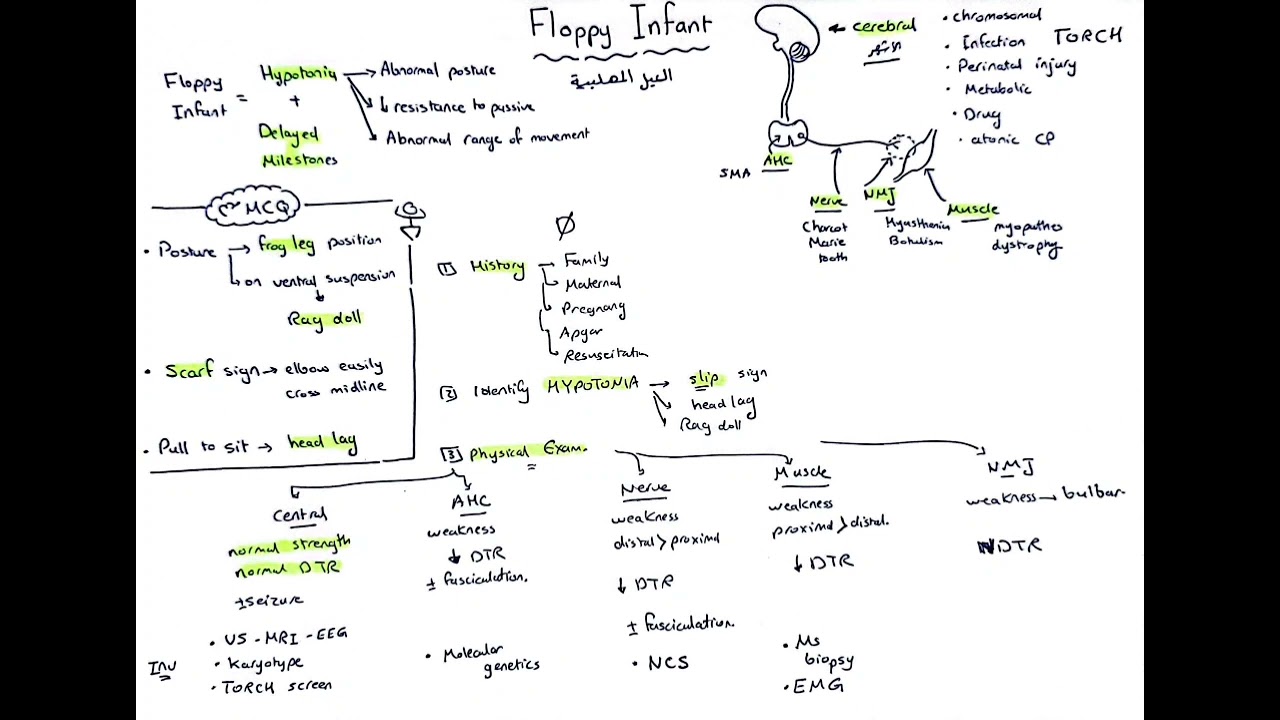 Floppy Infant
العيل المصلبية
Floppy Infant = Hypotonia + Delayed Milestones
→ Abnormal posture
↓ resistance to passive
Abnormal range of movement
← cerebral
• chromosomal
• Infection TORCH
• Perinatal injury
• Metabolic
• Drug
• atonic CP
SMA
AHC
Nerve
Charcot
Marie
tooth
NMJ
Myasthenia
Botulism
Muscle
myopathes
dystrophy
MCQ
• Posture → frog leg position
on ventral suspension
Rag doll
• Scarf sign → elbow easily
cross midline
• Pull to sit → head lag
1 History → Family
Maternal
Pregnancy
Apgar
Resuscitation
2 Identify HYPOTONIA → slip sign
head lag
Rag doll
3 Physical Exam.
Central
normal strength
normal DTR
± seizure
AHC
weakness
↓ DTR
± fasciculation.
Nerve
weakness
distal > proximal
↓ DTR
± fasciculation.
Muscle
weakness
proximal > distal.
↓ DTR
NMJ
weakness → bulbar
N DTR
Inv
• US - MRI - EEG
• Karyotype
• TORCH screen
• Molecular
genetics
• NCS
• Ms
biopsy
• EMG